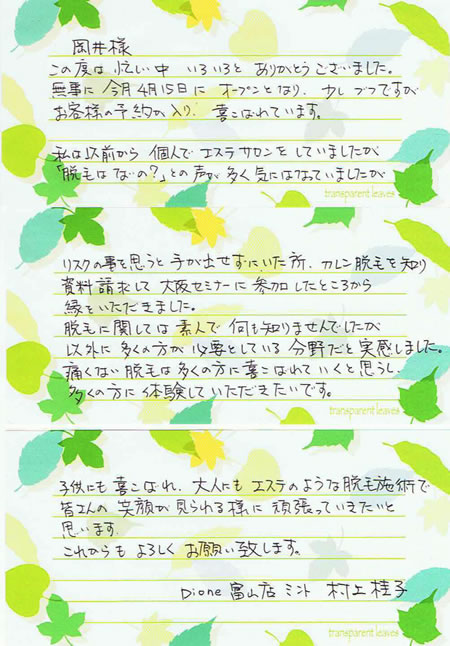 岡井様
この度は 忙しい中 いろいろと ありがとうございました。
無事に 今月4月15日に オープンとなり、少しづつですが
お客様の予約が入り 喜こばれています。
私は以前から 個人で エステサロンを していましたが
「脱毛は ないの?」との声が 多く 気にはなっていましたが
transparent leaves
リスクの事を思うと 手が出せずにいた所、カレン脱毛を知り
資料請求して 大阪セミナーに 参加したところから
縁をいただきました。
脱毛に関しては 素人で 何も知りませんでしたが
以外に 多くの方が 必要としている 分野だと 実感しました。
痛くない 脱毛は 多くの方に 喜こばれて いくと思うし、
多くの方に 体験していただきたいです。
transparent leaves
子供にも 喜こばれ、大人にも エステのような 脱毛施術で
皆さんの 笑顔が見られる様に 頑張っていきたいと
思います。
これからも よろしく お願い致します。
Dione 富山店 ミント 村上 桂子
transparent leaves